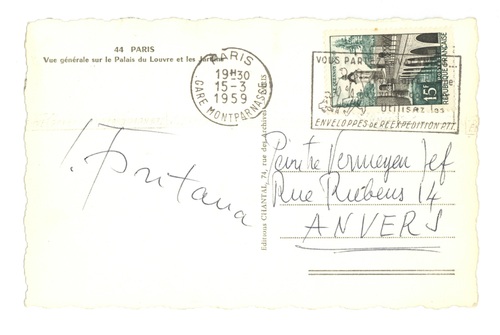 44 PARIS
Vue générale sur le Palais du Louvre et les Jardins
PARIS
19H30
15-3
1959
GARE MONTPARNASSE
VOUS PARTEZ
Utilisez les
ENVELOPPES DE RÉEXPÉDITION PTT
15F
RÉPUBLIQUE FRANÇAISE
Editions CHANTAL, 74, rue des Archives
Peintre Vermeyen Jef
Rue Rubens 14
ANVERS
Fontana